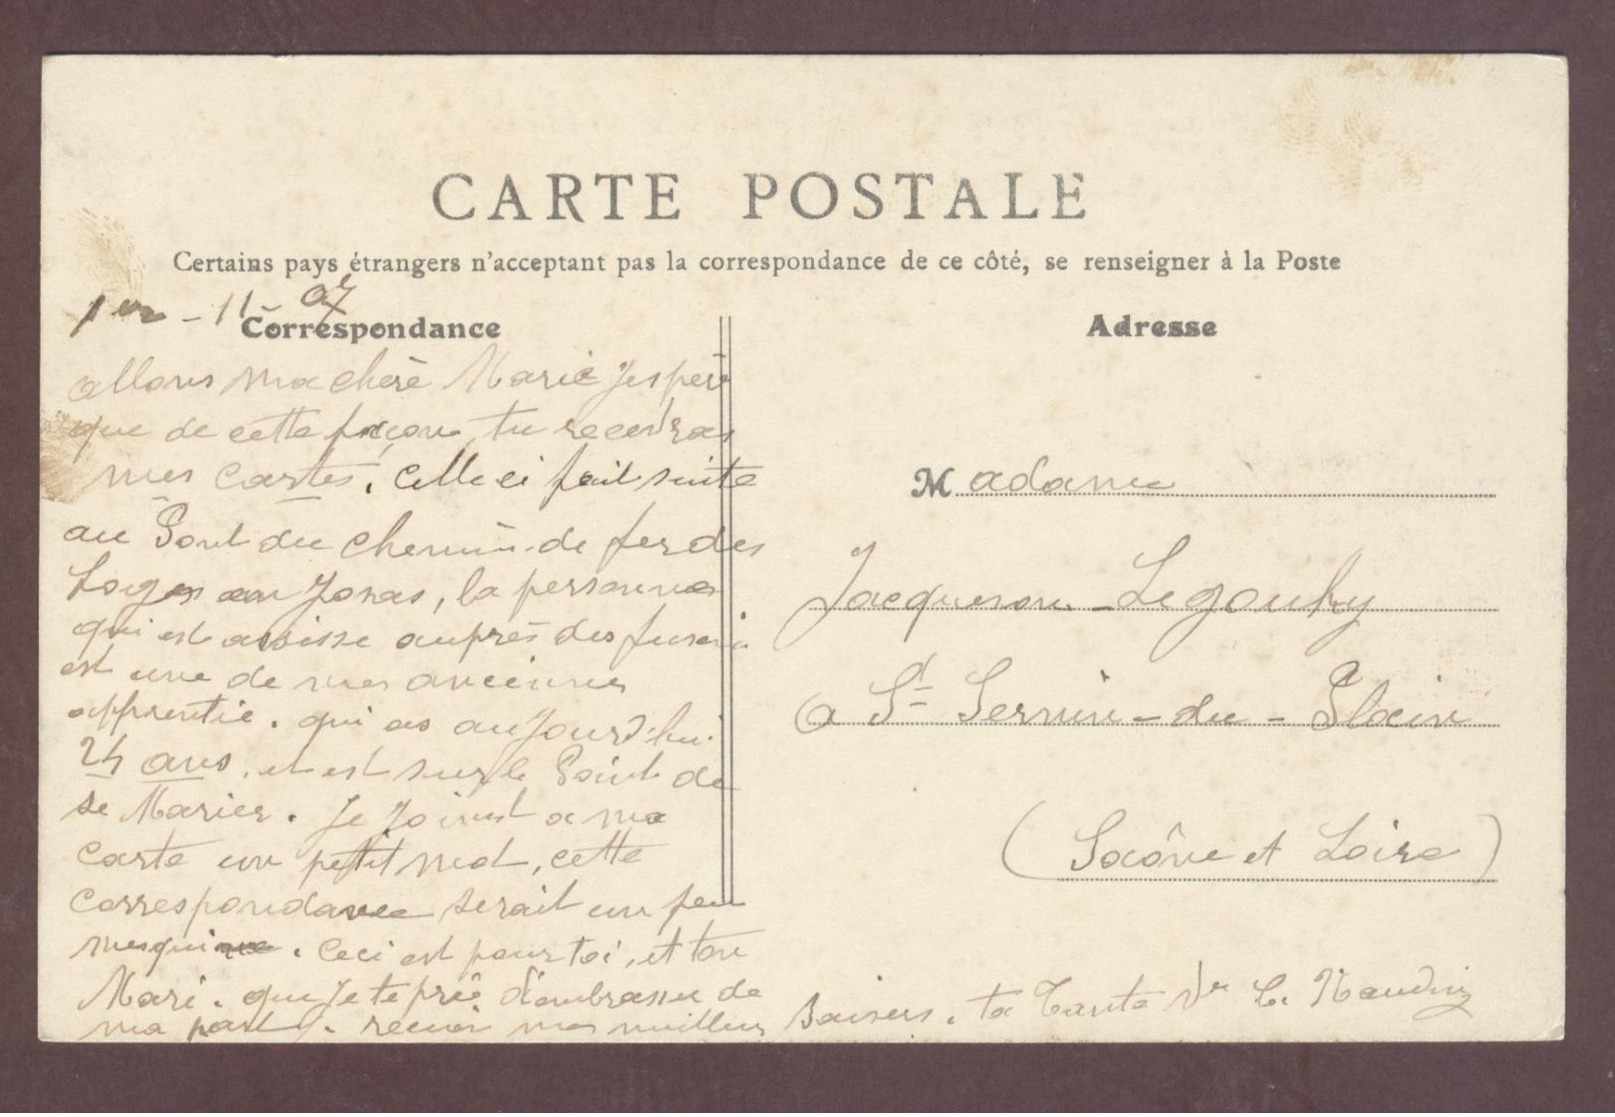 CARTE POSTALE
Certains pays étrangers n'acceptant pas la correspondance de ce côté, se renseigner à la Poste
1er - 11 - 07
Correspondance
allons ma chère Marie jespère
que de cette façon tu recevras
mes cartes. Celle ci fait suite
au Pont du chemin de fer des
Loges au Jonas, la personne
qui est assisse auprès des
est une de mes anciennes
apprentie. qui as aujourd'hui
24 ans, et est sur le Point de
se Marier. Je Joint a ma
carte un petit mot, cette
correspondance serait un peu
mesquine. Ceci est pour toi, et ton
Mari. que Je te prie d'embrasser de
ma part. recevoir mes meilleurs Baisers. ta Tante Ve
Adresse
Madame
Jacqueson - Legouhy
a St Sernin - du - Plain
(Saône et Loire)